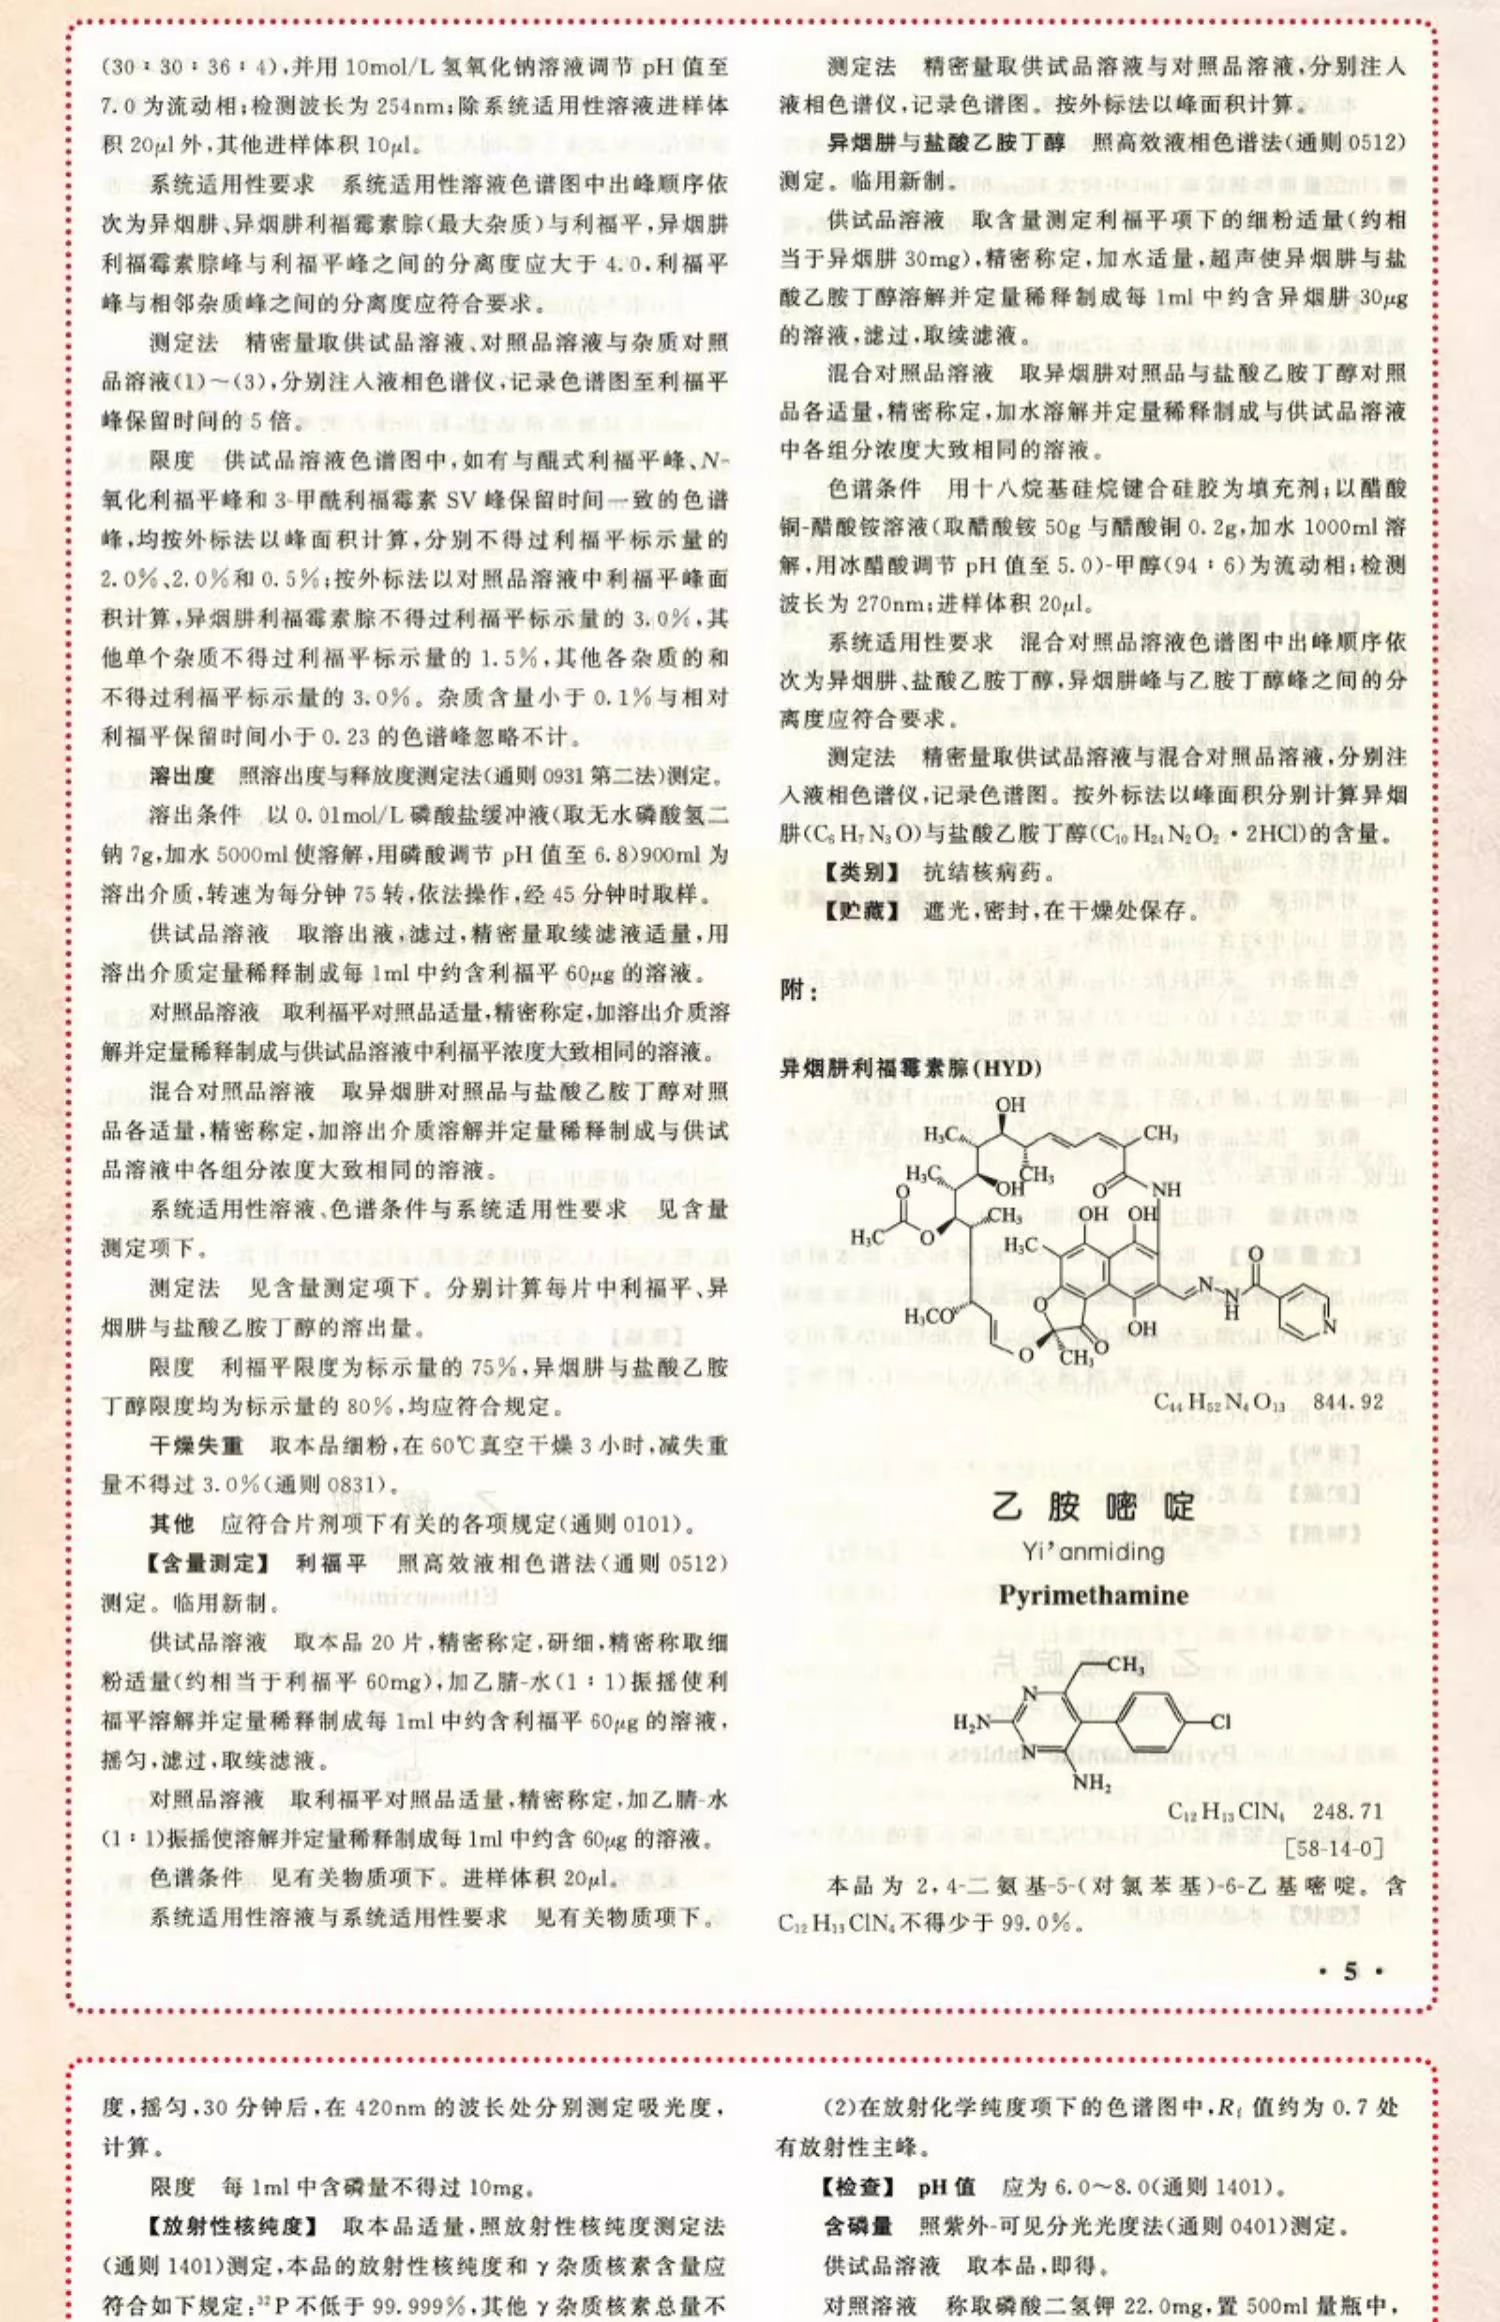 (30∶30∶36∶4),并用10mol/L氢氧化钠溶液调节pH值至
7.0为流动相;检测波长为254nm;除系统适用性溶液进样体
积20μl外,其他进样体积10μl。
系统适用性要求 系统适用性溶液色谱图中出峰顺序依
次为异烟肼、异烟肼利福霉素腙(最大杂质)与利福平,异烟肼
利福霉素腙峰与利福平峰之间的分离度应大于4.0,利福平
峰与相邻杂质峰之间的分离度应符合要求。
测定法 精密量取供试品溶液、对照品溶液与杂质对照
品溶液(1)~(3),分别注入液相色谱仪,记录色谱图至利福平
峰保留时间的5倍。
限度 供试品溶液色谱图中,如有与醌式利福平峰、N-
氧化利福平峰和3-甲酰利福霉素SV峰保留时间一致的色谱
峰,均按外标法以峰面积计算,分别不得过利福平标示量的
2.0%、2.0%和0.5%;按外标法以对照品溶液中利福平峰面
积计算,异烟肼利福霉素腙不得过利福平标示量的3.0%,其
他单个杂质不得过利福平标示量的1.5%,其他各杂质的和
不得过利福平标示量的3.0%。杂质含量小于0.1%与相对
利福平保留时间小于0.23的色谱峰忽略不计。
溶出度 照溶出度与释放度测定法(通则0931第二法)测定。
溶出条件 以0.01mol/L磷酸盐缓冲液(取无水磷酸氢二
钠7g,加水5000ml使溶解,用磷酸调节pH值至6.8)900ml为
溶出介质,转速为每分钟75转,依法操作,经45分钟时取样。
供试品溶液 取溶出液,滤过,精密量取续滤液适量,用
溶出介质定量稀释制成每1ml中约含利福平60μg的溶液。
对照品溶液 取利福平对照品适量,精密称定,加溶出介质溶
解并定量稀释制成与供试品溶液中利福平浓度大致相同的溶液。
混合对照品溶液 取异烟肼对照品与盐酸乙胺丁醇对照
品各适量,精密称定,加溶出介质溶解并定量稀释制成与供试
品溶液中各组分浓度大致相同的溶液。
系统适用性溶液、色谱条件与系统适用性要求 见含量
测定项下。
测定法 见含量测定项下。分别计算每片中利福平、异
烟肼与盐酸乙胺丁醇的溶出量。
限度 利福平限度为标示量的75%,异烟肼与盐酸乙胺
丁醇限度均为标示量的80%,均应符合规定。
干燥失重 取本品细粉,在60℃真空干燥3小时,减失重
量不得过3.0%(通则0831)。
其他 应符合片剂项下有关的各项规定(通则0101)。
【含量测定】 利福平 照高效液相色谱法(通则0512)
测定。临用新制。
供试品溶液 取本品20片,精密称定,研细,精密称取细
粉适量(约相当于利福平60mg),加乙腈-水(1∶1)振摇使利
福平溶解并定量稀释制成每1ml中约含利福平60μg的溶液,
摇匀,滤过,取续滤液。
对照品溶液 取利福平对照品适量,精密称定,加乙腈-水
(1∶1)振摇使溶解并定量稀释制成每1ml中约含60μg的溶液。
色谱条件 见有关物质项下。进样体积20μl。
系统适用性溶液与系统适用性要求 见有关物质项下。
测定法 精密量取供试品溶液与对照品溶液,分别注入
液相色谱仪,记录色谱图。按外标法以峰面积计算。
异烟肼与盐酸乙胺丁醇 照高效液相色谱法(通则0512)
测定。临用新制。
供试品溶液 取含量测定利福平项下的细粉适量(约相
当于异烟肼30mg),精密称定,加水适量,超声使异烟肼与盐
酸乙胺丁醇溶解并定量稀释制成每1ml中约含异烟肼30μg
的溶液,滤过,取续滤液。
混合对照品溶液 取异烟肼对照品与盐酸乙胺丁醇对照
品各适量,精密称定,加水溶解并定量稀释制成与供试品溶液
中各组分浓度大致相同的溶液。
色谱条件 用十八烷基硅烷键合硅胶为填充剂;以醋酸
铜-醋酸铵溶液(取醋酸铵50g与醋酸铜0.2g,加水1000ml溶
解,用冰醋酸调节pH值至5.0)-甲醇(94∶6)为流动相;检测
波长为270nm;进样体积20μl。
系统适用性要求 混合对照品溶液色谱图中出峰顺序依
次为异烟肼、盐酸乙胺丁醇,异烟肼峰与乙胺丁醇峰之间的分
离度应符合要求。
测定法 精密量取供试品溶液与混合对照品溶液,分别注
入液相色谱仪,记录色谱图。按外标法以峰面积分别计算异烟
肼(C₆H₇N₃O)与盐酸乙胺丁醇(C₁₀H₂₄N₂O₂·2HCl)的含量。
【类别】 抗结核病药。
【贮藏】 遮光,密封,在干燥处保存。
附:
异烟肼利福霉素腙(HYD)
OH
H₃C CH₃
H₃C OH CH₃ O NH
O CH₃ OH OH
H₃C O H₃C O
N N H
H₃CO O OH N
O CH₃ O
C₄₄H₅₂N₄O₁₃ 844.92
乙胺嘧啶
Yi’anmiding
Pyrimethamine
CH₃
N
H₂N Cl
N
NH₂
C₁₂H₁₃ClN₄ 248.71
[58-14-0]
本品为2,4-二氨基-5-(对氯苯基)-6-乙基嘧啶。含
C₁₂H₁₃ClN₄不得少于99.0%。
· 5 ·
度,摇匀,30分钟后,在420nm的波长处分别测定吸光度,
计算。
限度 每1ml中含磷量不得过10mg。
【放射性核纯度】 取本品适量,照放射性核纯度测定法
(通则1401)测定,本品的放射性核纯度和γ杂质核素含量应
符合如下规定:³²P不低于99.999%,其他γ杂质核素总量不
(2)在放射化学纯度项下的色谱图中,Rf值约为0.7处
有放射性主峰。
【检查】 pH值 应为6.0~8.0(通则1401)。
含磷量 照紫外-可见分光光度法(通则0401)测定。
供试品溶液 取本品,即得。
对照溶液 称取磷酸二氢钾22.0mg,置500ml量瓶中,